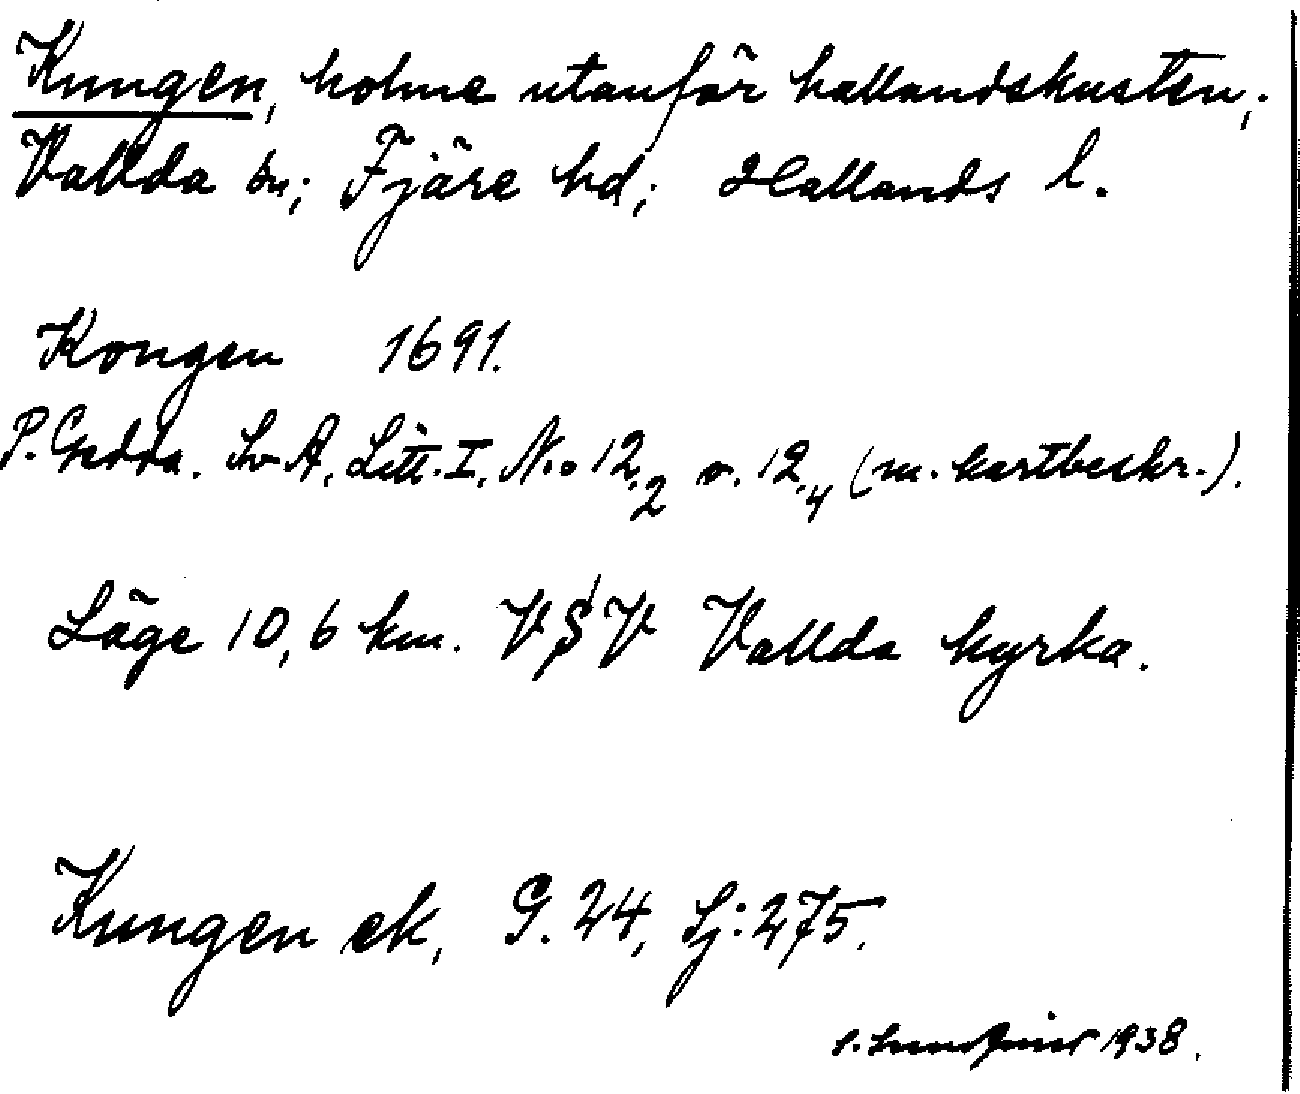 Kungen, holme utanför hallandskusten;
Vallda sn; Fjäre hd; Hallands l.
Kongen 1691.
P. Gedda. Sv A. Litt. I. N:o 12.2 o. 12.4 (m. kartbeskr.).
Läge 10,6 km. V§V Vallda kyrka.
Kungen ek, G. 24, Sj: 275.
1938.